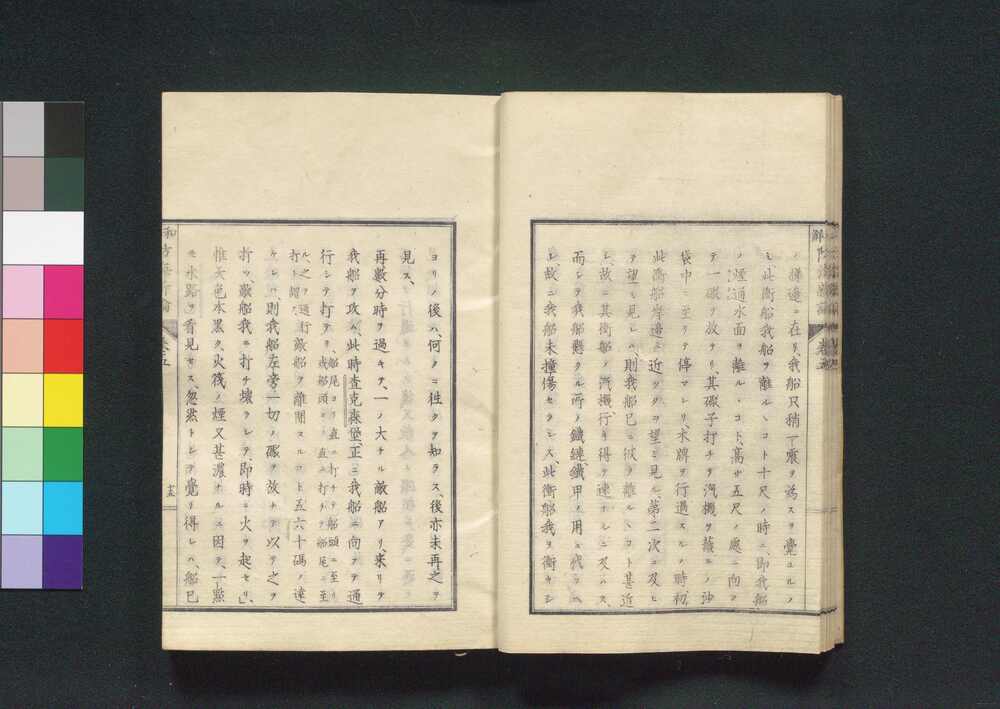 ノ縁邊ニ在リ、我船只稍〻震ヲ為スヲ覺ユルノ
ミ、此衝船我船ヲ離ル、コト十尺ノ時ニ、即我船
ノ煙通水面ヲ離ル、コト、高サ五尺ノ處ニ向フ
テ一礮ヲ放テリ、其礮子打チテ汽機ヲ護スルノ沙
袋中ニ至リテ停マレリ、木牌ヲ行過スルノ時、初
此衝船岸邊ニ近ツクヲ望ミ見ル、第二次ニ及ヒ
テ望ミ見レハ、則我船已ニ彼ヲ離ル、コト甚近
シ、故ニ其衝船ノ汽機行キ得テ速ナルニ及ハス、
而シテ我船懸クル所ノ鐵鏈鐵甲ノ用ニ代ラハ
シ、故ニ我船未撞傷セラレス、此衝船我ヲ衝カレ
ヨリノ後ハ、何クニ徃クヲ知ラス、後亦未再之ヲ
見ス、
再數分時ヲ過キテ、一ノ大ナル敵船アリ、来リテ
我船ヲ攻ム、此時査克森堡、正ニ我船ニ向フテ通
行シテ打テリ、船尾ヨリ直ニ打チテ船頭ニ至リ
或船頭ヨリ直ニ打チテ船尾ニ至
ル、之ヲ通行
打ト謂フ、敵船ヲ離開スルコト五六十碼ノ遠
ケレハ則我船左旁一切ノ礮ヲ放チテ以テ之ヲ
打ツ、敵船我ニ打チ壊ラレテ、即時ニ火ヲ起セリ、
惟天色水黒ク、火筏ノ煙又甚濃ナルニ因テ、一㸃
モ水路ヲ看見セス、忽然トシテ覺リ得レハ、船已